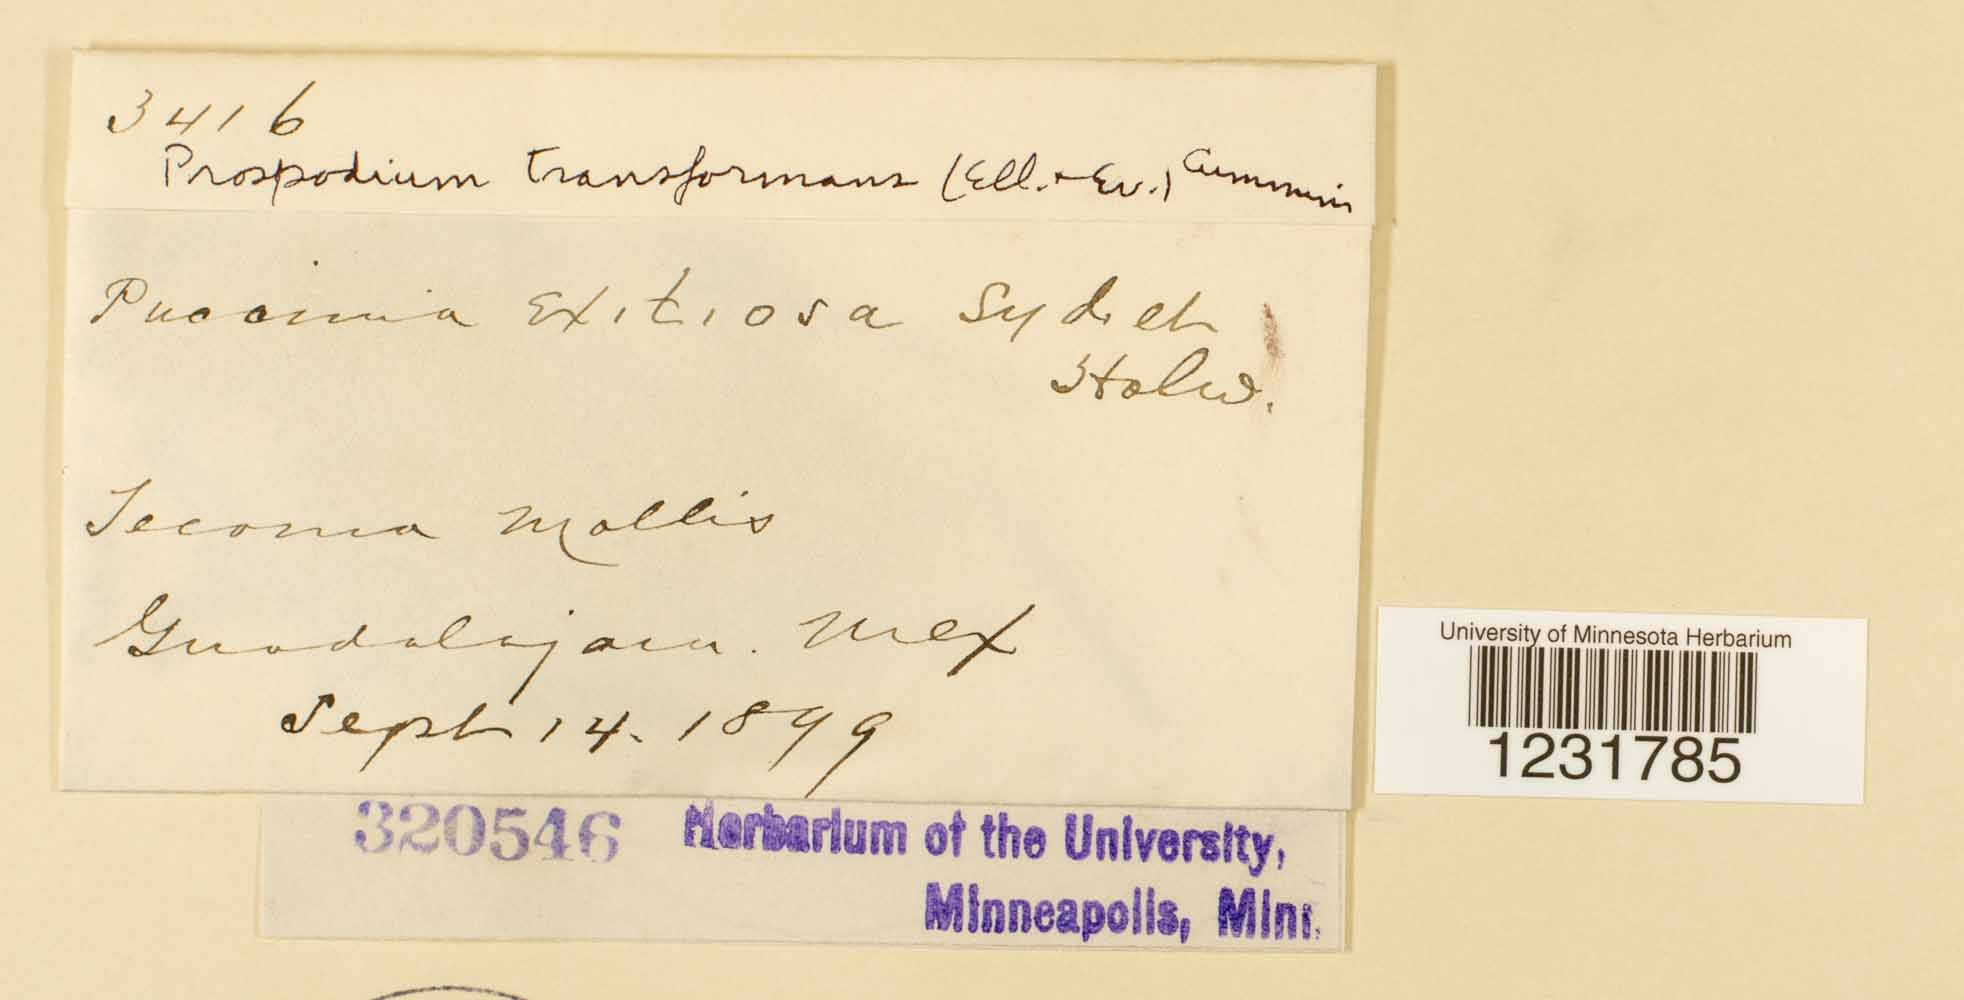 3416
Prospodium transformans (Ell. + Ev.) Cummin
Puccinia Exitiosa Syd. et
Holw.
Tecoma Mollis
Guadalajara. Mex
Sept 14. 1899
320546 Herbarium of the University,
Minneapolis, Minn.
University of Minnesota Herbarium
1231785